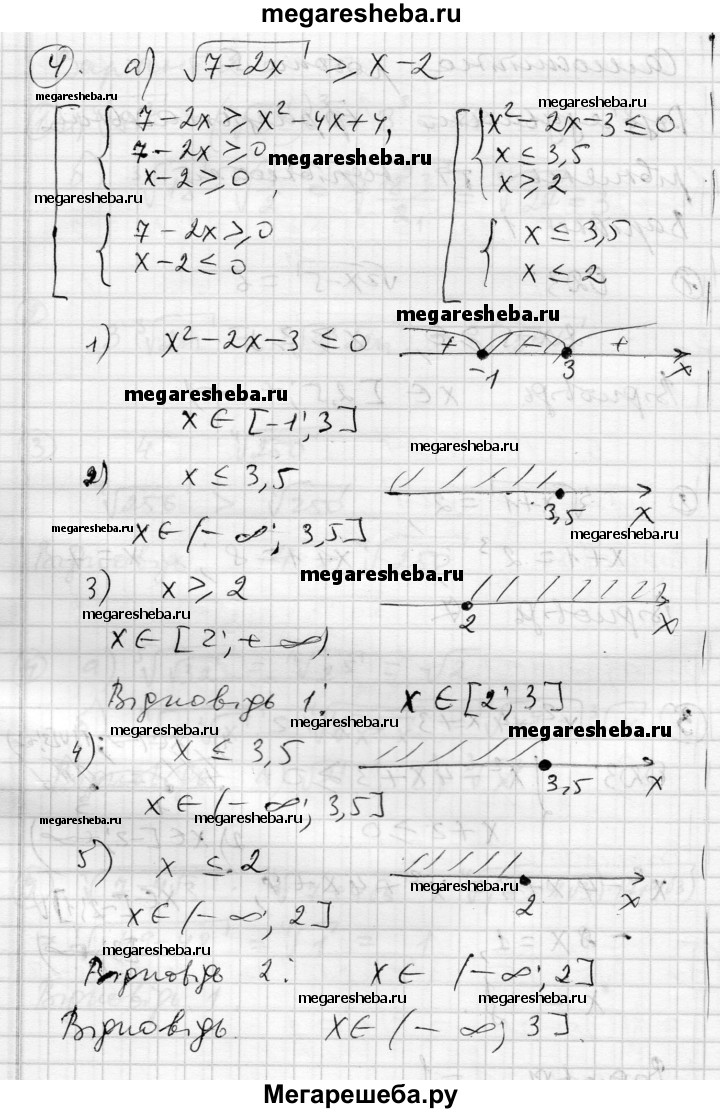 megaresheba.ru
4. а) √(7-2x) ≥ x-2
megaresheba.ru
megaresheba.ru
7-2x ≥ x²-4x+4,
7-2x ≥ 0
x-2 ≥ 0,
megaresheba.ru
megaresheba.ru
7-2x ≥ 0
x-2 ≤ 0
x²-2x-3 ≤ 0
x ≤ 3,5
x ≥ 2
x ≤ 3,5
x ≤ 2
megaresheba.ru
1) x²-2x-3 ≤ 0
+ - +
-1 3 x
megaresheba.ru
x ∈ [-1; 3]
megaresheba.ru
2) x ≤ 3,5
3,5 x
megaresheba.ru
x ∈ (-∞; 3,5]
megaresheba.ru
megaresheba.ru
3) x ≥ 2
2 x
megaresheba.ru
x ∈ [2; +∞)
Відповідь 1: x ∈ [2; 3]
megaresheba.ru
megaresheba.ru
megaresheba.ru
4) x ≤ 3,5
3,5 x
x ∈ (-∞; 3,5]
megaresheba.ru
megaresheba.ru
5) x ≤ 2
megaresheba.ru
2 x
x ∈ (-∞; 2]
megaresheba.ru
Відповідь 2: x ∈ (-∞; 2]
megaresheba.ru
megaresheba.ru
Відповідь. x ∈ (-∞; 3].
Мегарешеба.ру